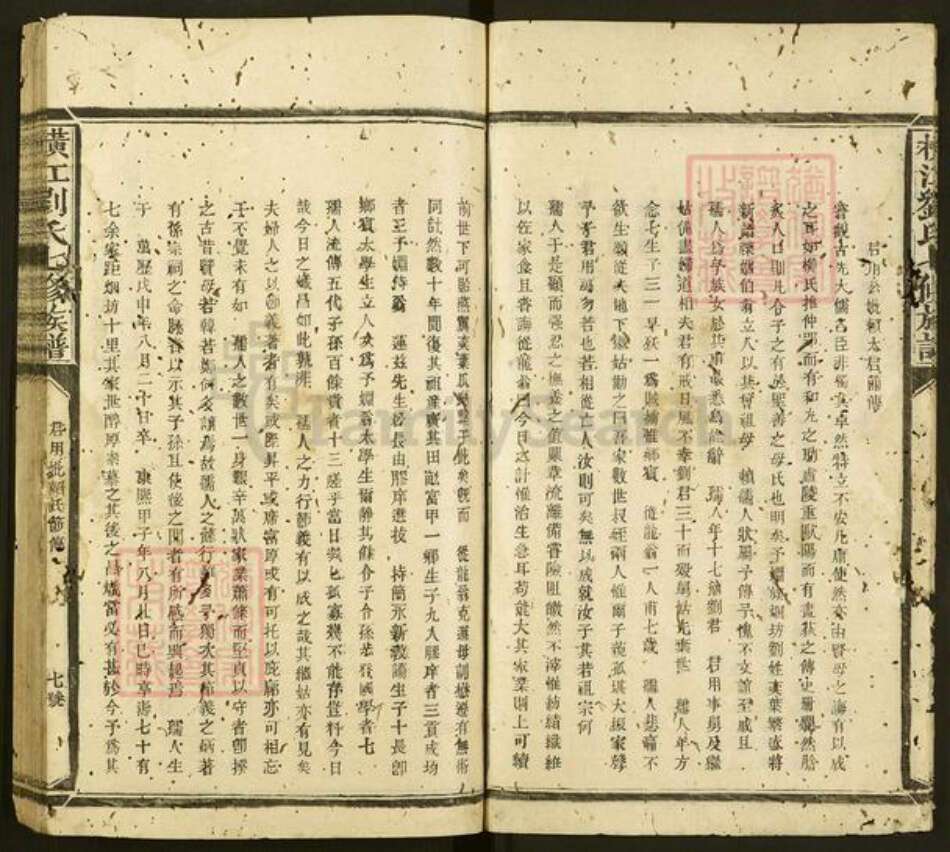 君用公妣賴太君節傳
嘗觀古先大儒名臣非獨卓然特立不安凡庸使然亦由賢母之誨有以成
之耳如橫氏推仲郢而有和丸之助盧陵重歐陽而有畫荻之傳史冊斕然膾
炙人口則凡令子之有無皆善之母氏也明矣予姻族烟坊劉姓葉繁盛將
新譜牒姻伯有立人以其曾祖母 賴孺人狀屬予傳予愧不文誼至戚且
孺人為予族女於其事最悉烏能辭 孺人年十七適劉君 君用事舅及繼
姑備盡婦道相夫君有戒日風不幸劉君三十而歿舅姑先棄世 孺人年方
念七生子三一早殀一為賊擄惟鄉賓 從龍翁一人甫七歲 孺人悲痛不
欲生願從夫地下儀姑勸之曰吾家數世叔姪兩人惟爾子孤孤堪大振家聲
予子君用囑勿苦也若相從亡人汝則可矣無以成就汝子其若祖宗何
孺人于是顧而强忍之撫養之值鼎革流離備嘗險阻皦然不滓惟紡績織維
以佐家食且耆誨從龍翁曰今日之計惟治生急耳苟能大其家業則上可續
前世下可貽燕翼奕葉瓜瓞基于此矣旣而 從龍翁克遵母訓懋遷有無術
同計然數十年間復其祖業廣其田畝富甲一鄉生子九人膠庠者三貢成均
者壬予姻持翁 蓮茲先生於長由膠庠進技 持簡永新教諭生子十長卽
鄉賓太學生立人次為予姻翁太學生爾靜其餘令子令孫恭登國學者七
孺人流傳五代子孫百餘貴者十三嗟乎當日煢七孤寡幾不能存豈料今日
哉今日之熾昌如此孰非 孺人之力行節義有以成之哉其繼姑亦有見矣
夫婦人之以節義著者有矣或際昇平或席富厚或有可托以庇廕亦可相忘
于不覺未有如 孺人之數世一身艱辛萬狀家業蕭條而堅貞以守者卽揆
之古昔賢母若韓若鄭何多讓焉故孺人之懿行難多予獨次其節義之炳著
有係宗祠之命脉者以示其子孫且使後之閱者有所感而興起焉 孺人生
于 萬歷戊申年八月二十日卒 康熙甲子年八月廿日巳時享壽七十有
七余家距烟坊十里其家世醇厚素慕之其後之昌熾當必有甚於今予為其
橫江劉氏七修族譜
君用妣賴氏節傳
七號